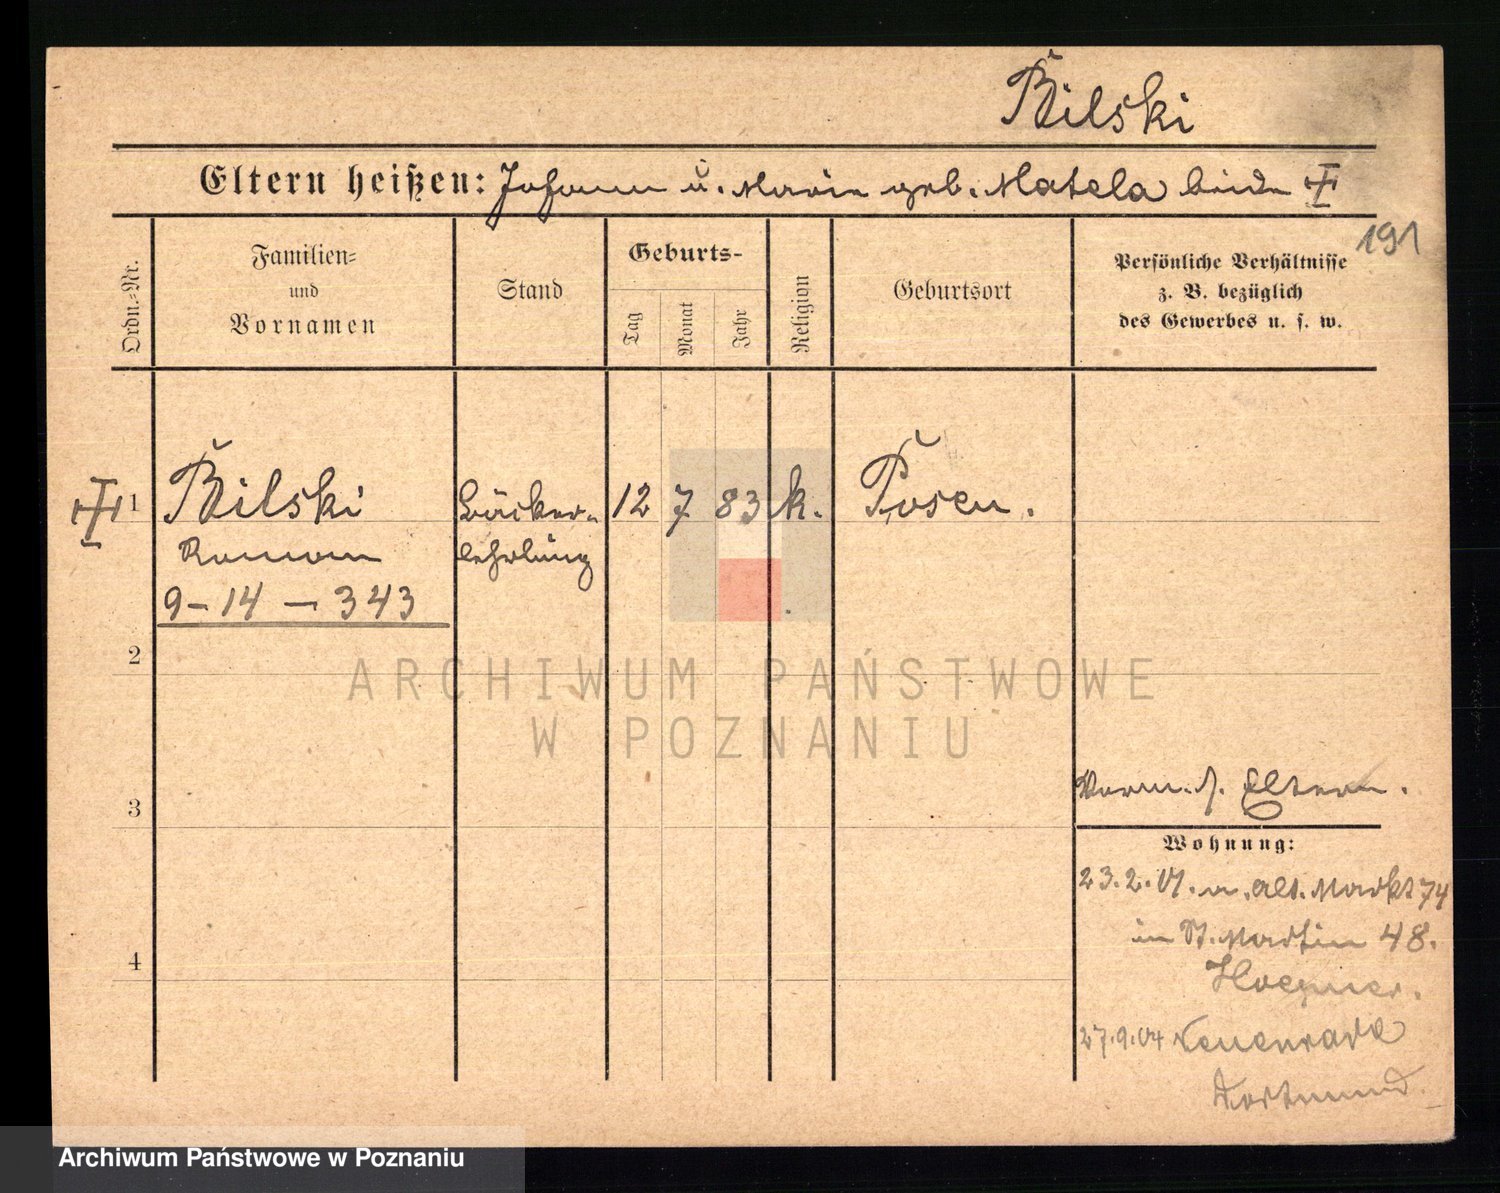 Bilski
Eltern heißen: Johann u. Marie geb. Matela beide
191
Ordn.=Nr.
Familien=
und
Vornamen
Stand
Geburts-
Tag
Monat
Jahr
Religion
Geburtsort
Persönliche Verhältnisse
z. B. bezüglich
des Gewerbes u. s. w.
1
Bilski
Bäcker-
12
7
83
k.
Posen.
Roman
lehrling
9-14 - 343
2
ARCHIWUM PAŃSTWOWE
W POZNANIU
3
Eltern.
Wohnung:
23.2.01. Alt. Markt 74
in St. Martin 48.
4
27.9.04 Neuenrade
Dortmund.
Archiwum Państwowe w Poznaniu